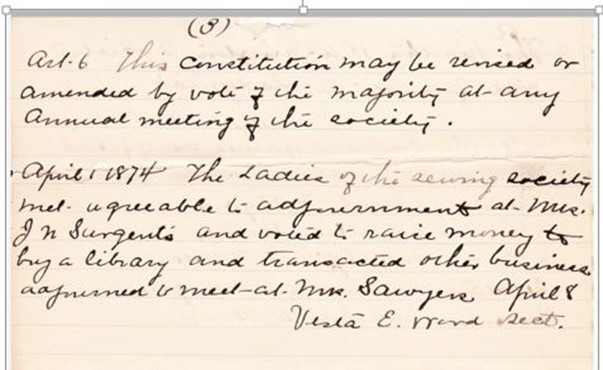 (3)
Art. 6 This Constitution may be revised or
amended by vote of the majority at any
Annual meeting of the society.
April 1 1874 The Ladies of the sewing society
met agreeable to adjournment at Mrs.
J N Surgents and voted to raise money to
buy a library and transacted other business
adjourned to meet at Mrs. Sawyers April 8
Vesta E. Ward Sect.